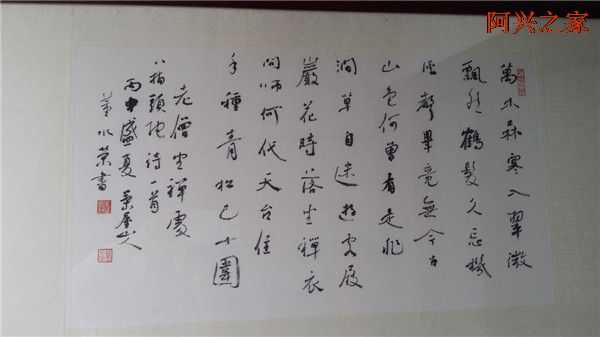 阿兴之家
萬木森寒入翠微
飄然鶴髮久忘機
溪聲畢竟無今古
山色何曾有是非
澗草自迷遊客屐
巖花時落坐禪衣
問師何代天台住
手種青松已十圍
老僧坐禪處
八指頭陀詩一首
丙申盛夏
董水榮書